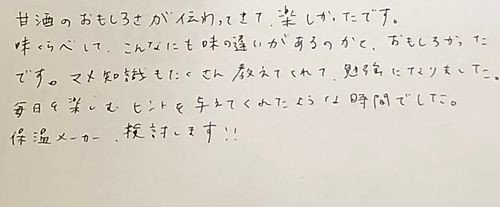 甘酒のおもしろさが伝わってきて、楽しかったです。
味くらべして、こんなにも味の違いがあるのかと、おもしろかった
です。マメ知識もたくさん教えてくれて、勉強になりました。
毎日を楽しむヒントを与えてくれたような時間でした。
保温メーカー、検討します!!